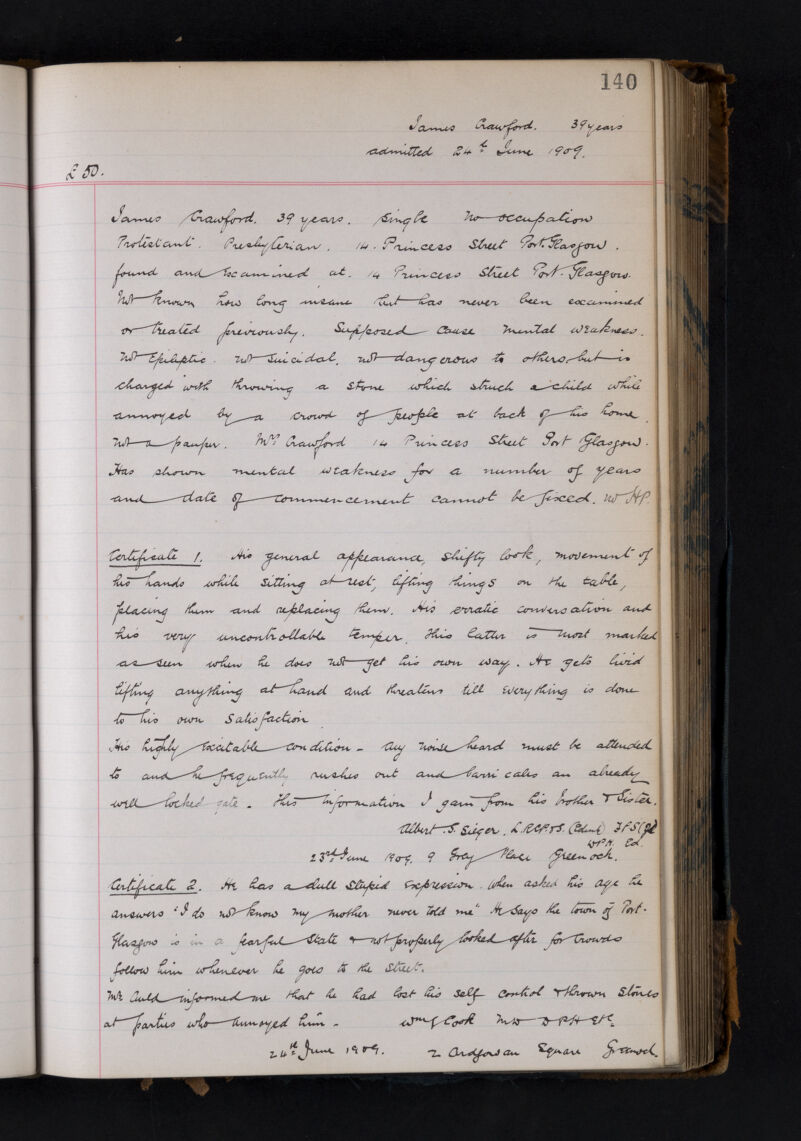 140
James Crawford. 39 years
admitted 24th June 1909.
£50.
James Crawford. 39 years. Single No occupation
Protestant. Presbyterian. 14. Princess Street Port. Glasgow.
found and Examined at. 14 Princess Street Port. Glasgow.
Not known how long insane but has never been examined
or treated previously. Supposed cause mental weakness.
Not Epileptic. not suicidal. not dangerous to others but is
charged with throwing a stone which struck a child while
annoyed by a crowd of people at back of his home.
Not a pauper. Mrs Crawford 14 Princess Street Port Glasgow.
Has shown mental weakness for a number of years
and date of commencement cannot be fixed. no HP.
Certificate 1. His general appearance, shifty look, movement of
his hands while sitting at rest, lifting things on the table,
placing them and replacing them. His erratic conversation and
his very uncontrollable temper. This latter is most marked
as seen when he does not get his own way. He gets livid
lifting anything at hand and threatens till everything is done
to his own satisfaction
His highly Excitable condition - any noise heard must be attended
to and he frequently rushes out and barricades an already
well locked gate. This information I gain from his brother & Sister.
Albert. S. Sieger. L.R.C.P.&S. (Edin) F.F.S (Gl)
D.P.H. Ed.
23rd June 1909. 9 Grey Place Greenock.
Certificate 2. He has a dull stupid expression. When asked his age he
answers "I do not know my mother never told me" He says the town of Port.
Glasgow is in a fearful state & not properly looked after for crowds
follow him whenever he goes to the street.
Mr Auld informed me that he had lost his self control & thrown stones
at parties who annoyed him - Wm J Cook MD DPH Etc.
24th June 1909. 2 Ardgowan Square Greenock.